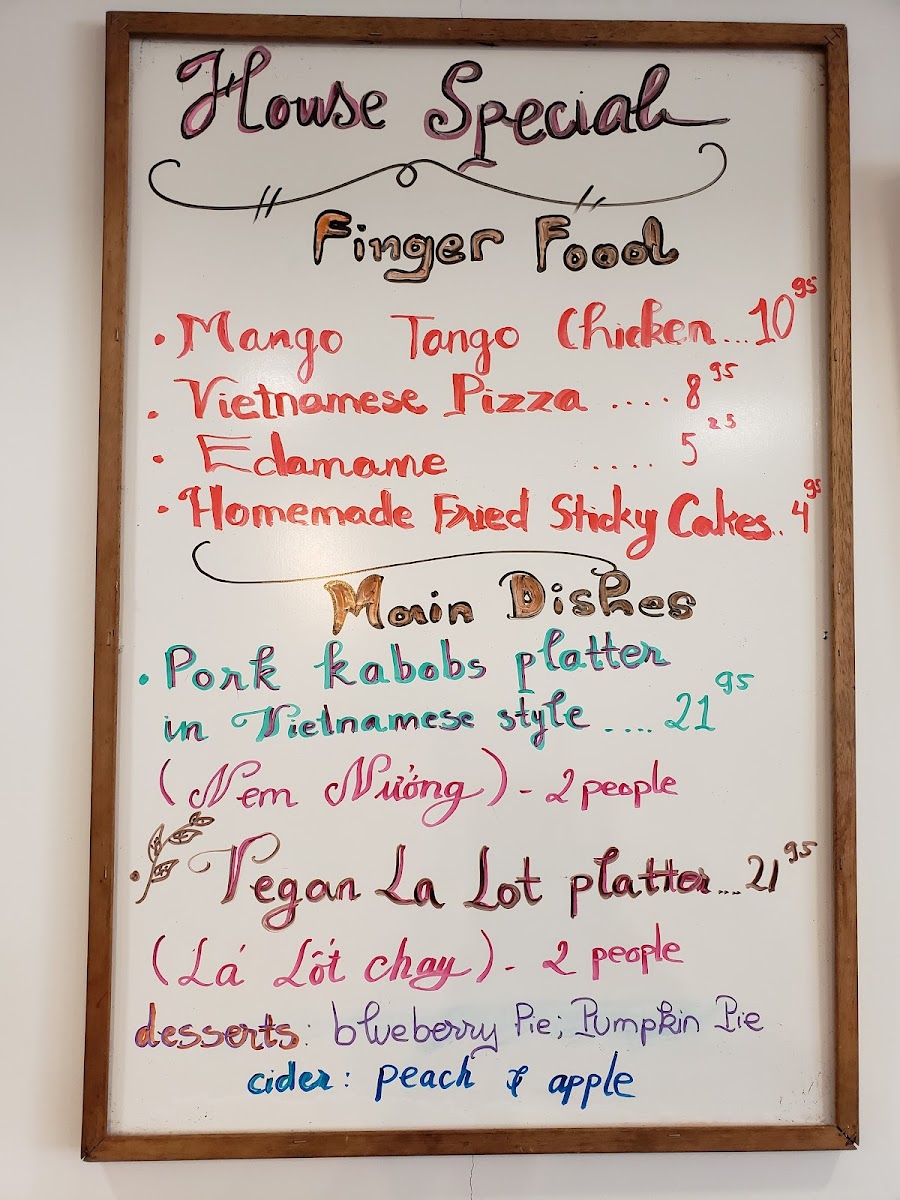 House Special
Finger Food
• Mango Tango Chicken...10 95
• Vietnamese Pizza .... 8 95
• Edamame .... 5 25
• Homemade Fried Sticky Cakes.. 4 95
Main Dishes
• Pork kabobs platter
in Vietnamese style .... 21 95
(Nem Nướng) - 2 people
• Vegan La Lot platter...21 95
(Lá Lốt chay) - 2 people
desserts: blueberry Pie; Pumpkin Pie
cider: peach & apple